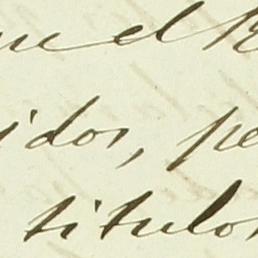 ue el
idos, pe
titulo